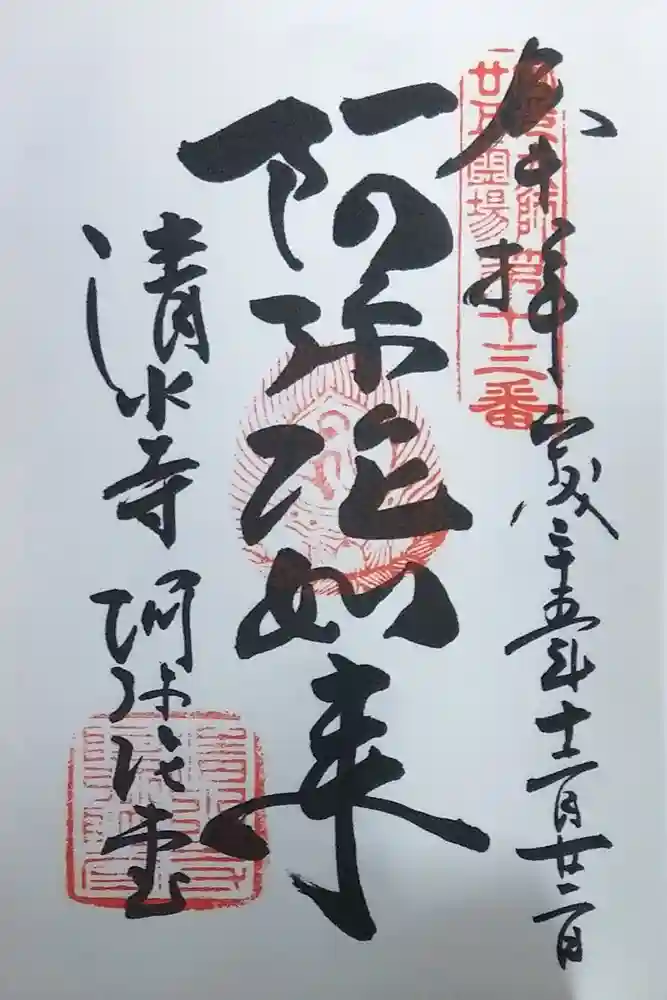 奉拝 平成二十五年十二月廿二日
圓光大師
廿五霊場
第十三番
阿弥陀如来
清水寺 阿弥陀堂